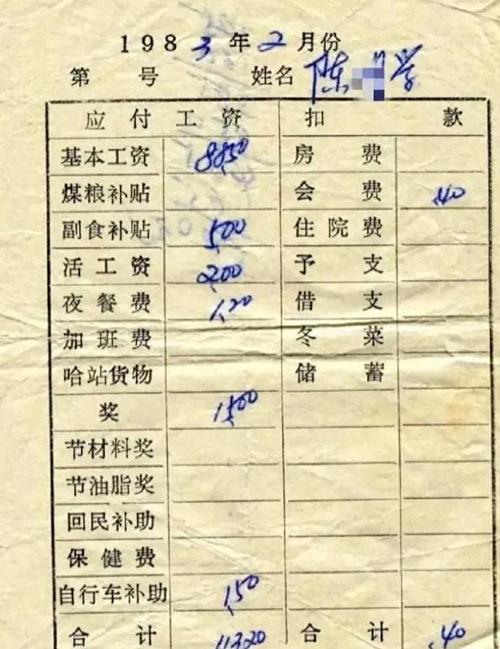 1983年2月份
第 号 姓名 陈 学
应付工资 扣款
基本工资 88.50 房费
煤粮补贴 会费 .40
副食补贴 5.00 住院费
活工资 2.00 予支
夜餐费 1.20 借支
加班费 冬菜
哈站货物 储蓄
奖 15.00
节材料奖
节油脂奖
回民补助
保健费
自行车补助 1.50
合计 113.20 合计 .40